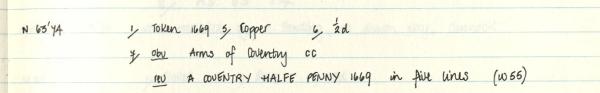 N 63'YA 1, Token 1669 5, Copper 6, ½d
7, obv Arms of Coventry CC
rev A COVENTRY HALFE PENNY 1669 in five lines (W55)